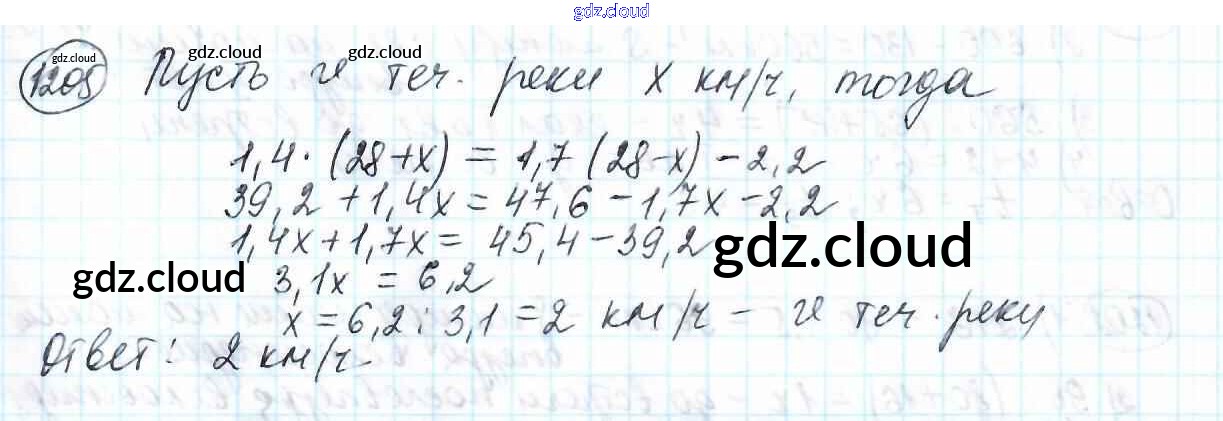 gdz.cloud
1205 Пусть теч. реки x км/ч, тогда
gdz.cloud gdz.cloud gdz.cloud
1,4·(28+x) = 1,7(28-x)-2,2
39,2+1,4x = 47,6-1,7x-2,2
1,4x+1,7x = 45,4-39,2
gdz.cloud
gdz.cloud 3,1x = 6,2
x=6,2:3,1=2 км/ч - теч. реки
Ответ: 2 км/ч